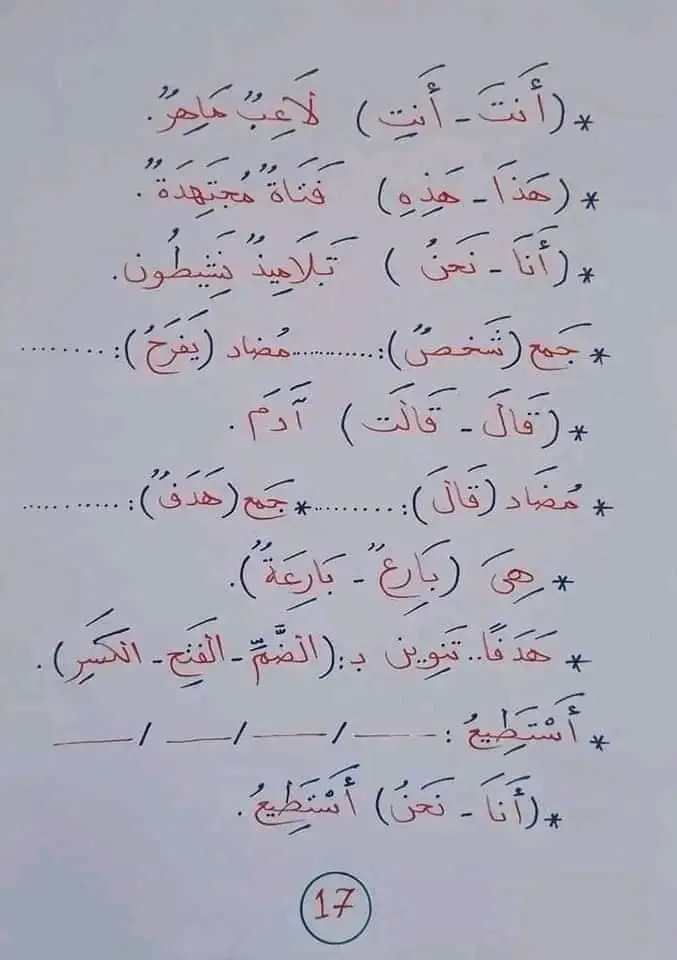 * (أَنتَ - أَنتِ) لَاعِبٌ مَاهِرٌ.
* (هَذَا - هَذِهِ) فَتَاةٌ مُجتَهِدَةٌ.
* (أَنَا - نَحنُ) تَلَامِيذٌ نَشِيطُون.
* جَمع (شَخصٌ): ........... مُضاد (يَفرَحُ): ........
* (قَالَ - قَالَت) آدَم.
* مُضَاد (قَالَ): ......... * جَمع (هَدَفٌ): ..........
* هِىَ (بَارِعٌ - بَارِعَةٌ).
* هَدَفًا.. تَنوِين بـ: (الضَّمِّ - الفَتحِ - الكَسرِ).
* أَسْتَطِيعُ: ــــ / ــــ / ــــ / ــــ
* (أَنَا - نَحنُ) أَسْتَطِيعُ.
17